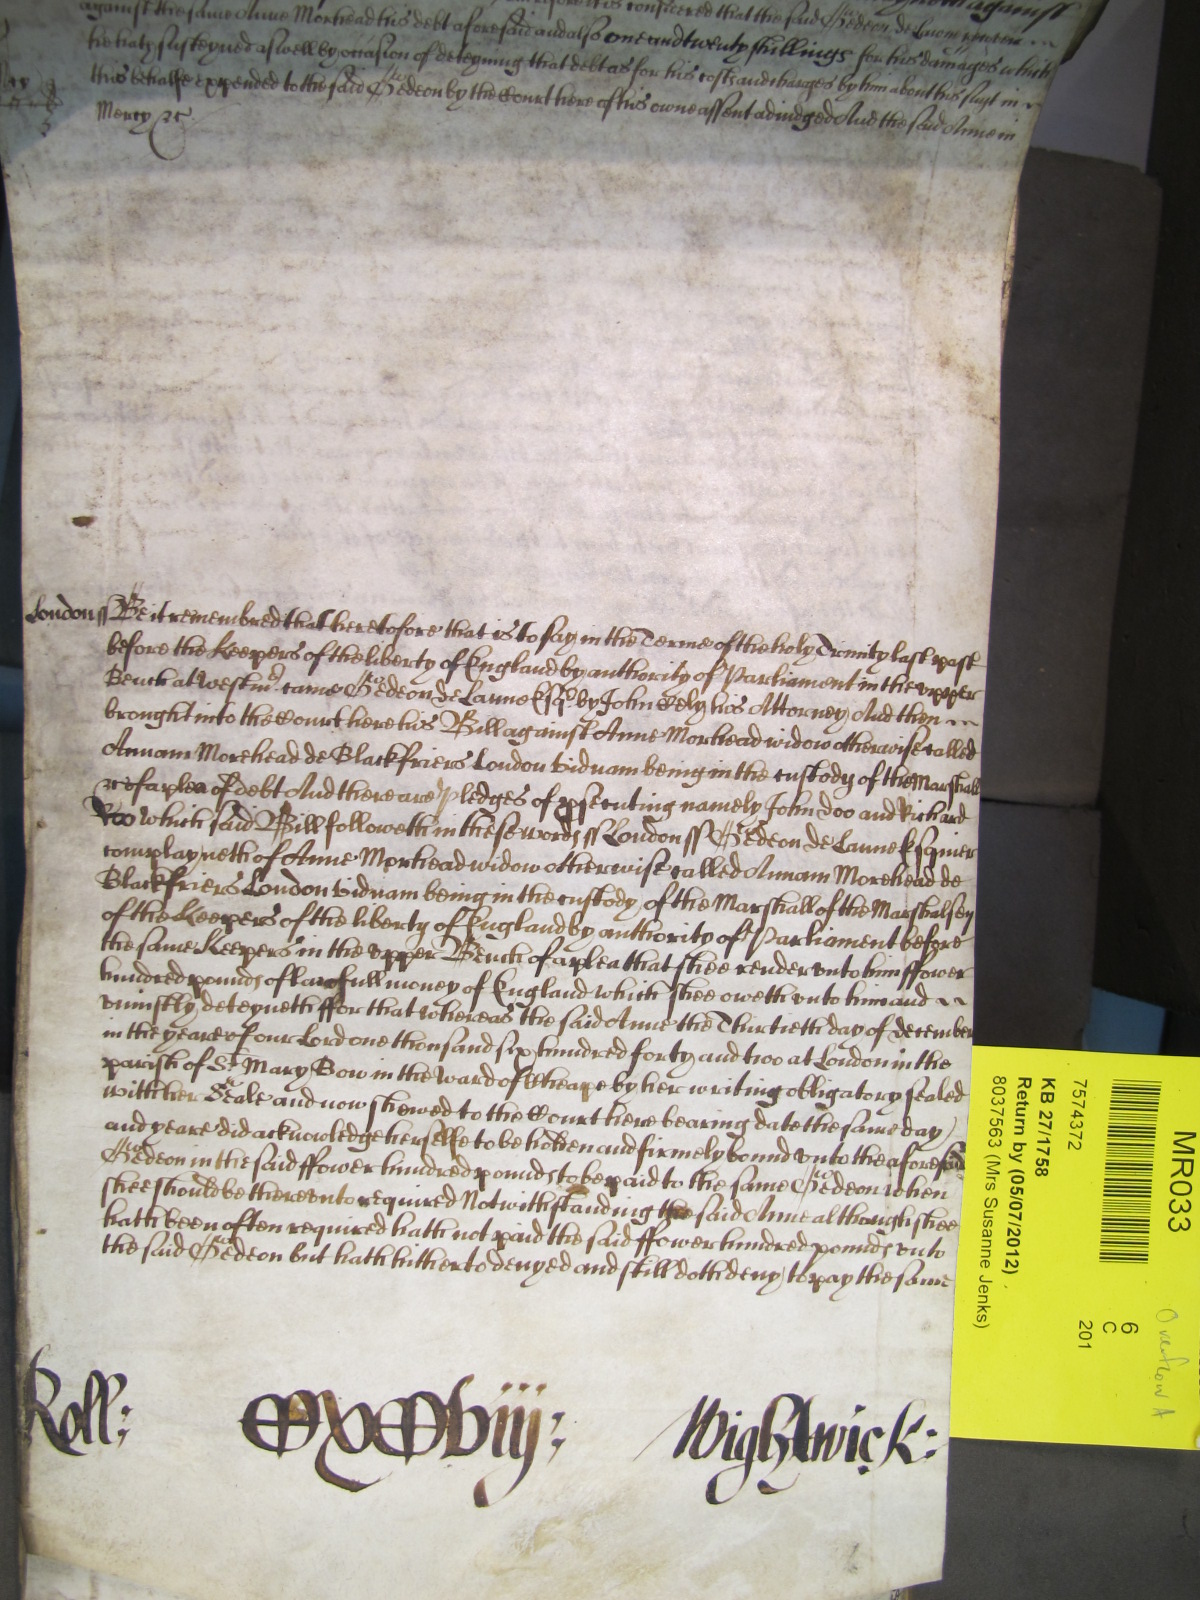 against the same Anne Morhead his debt aforesaid and also one and twenty shillings for his damages which
he hath susteyned aswell by occasion of deteyning that debt as for his costs and charges by him about his suyt in
this behalfe expended to the said Gedeon by the Court here of his owne assent adiudged And the said Anne in
Mercy &c
London ss Be it remembred that heretofore that is to say in the Terme of the holy Trinity last past
before the Keepers of the liberty of England by authority of Parliament in the upper
Bench at Westmr came Gedeon de Laune Esqr by John Kely his Attorney And then
brought into the Court here his Bill against Anne Morhead widow otherwise called
Annam Morehead de Blackfriers London viduam being in the custody of the Marshall
&c of a plea of debt And there are pledges of prosecuting namely John Doo and Richard
Roo which said Bill followeth in these words ss London ss Gedeon de Laune Esquier
complayneth of Anne Morhead widow otherwise called Annam Morehead de
Blackfriers London viduam being in the custody of the Marshall of the Marshalsey
of the Keepers of the liberty of England by authority of Parliament before
the same Keepers in the upper Bench of a plea that shee render unto him ffower
hundred pounds of lawfull money of England which shee oweth unto him and
uniustly deteyneth ffor that whereas the said Anne the Thirtieth day of December
in the yeare of our Lord one thousand six hundred forty and two at London in the
parish of St Mary Bow in the ward of Cheape by her writing obligatory sealed
with her Seale and now shewed to the Court here bearing date the same day
and yeare did acknowledge herselfe to be holden and firmely bound unto the aforesaid
Gedeon in the said ffower hundred pounds to be paid to the same Gedeon when
shee should be thereunto required Notwithstanding the said Anne although shee
hath been often required hath not paid the said ffower hundred pounds unto
the said Gedeon but hath hitherto denyed and still doth deny to pay the same
Roll: Wightwick:
MR033
7574372
KB 27/1758
Return by (05/07/2012)
8037563 (Mrs Susanne Jenks)
6
C
201
Overflow A